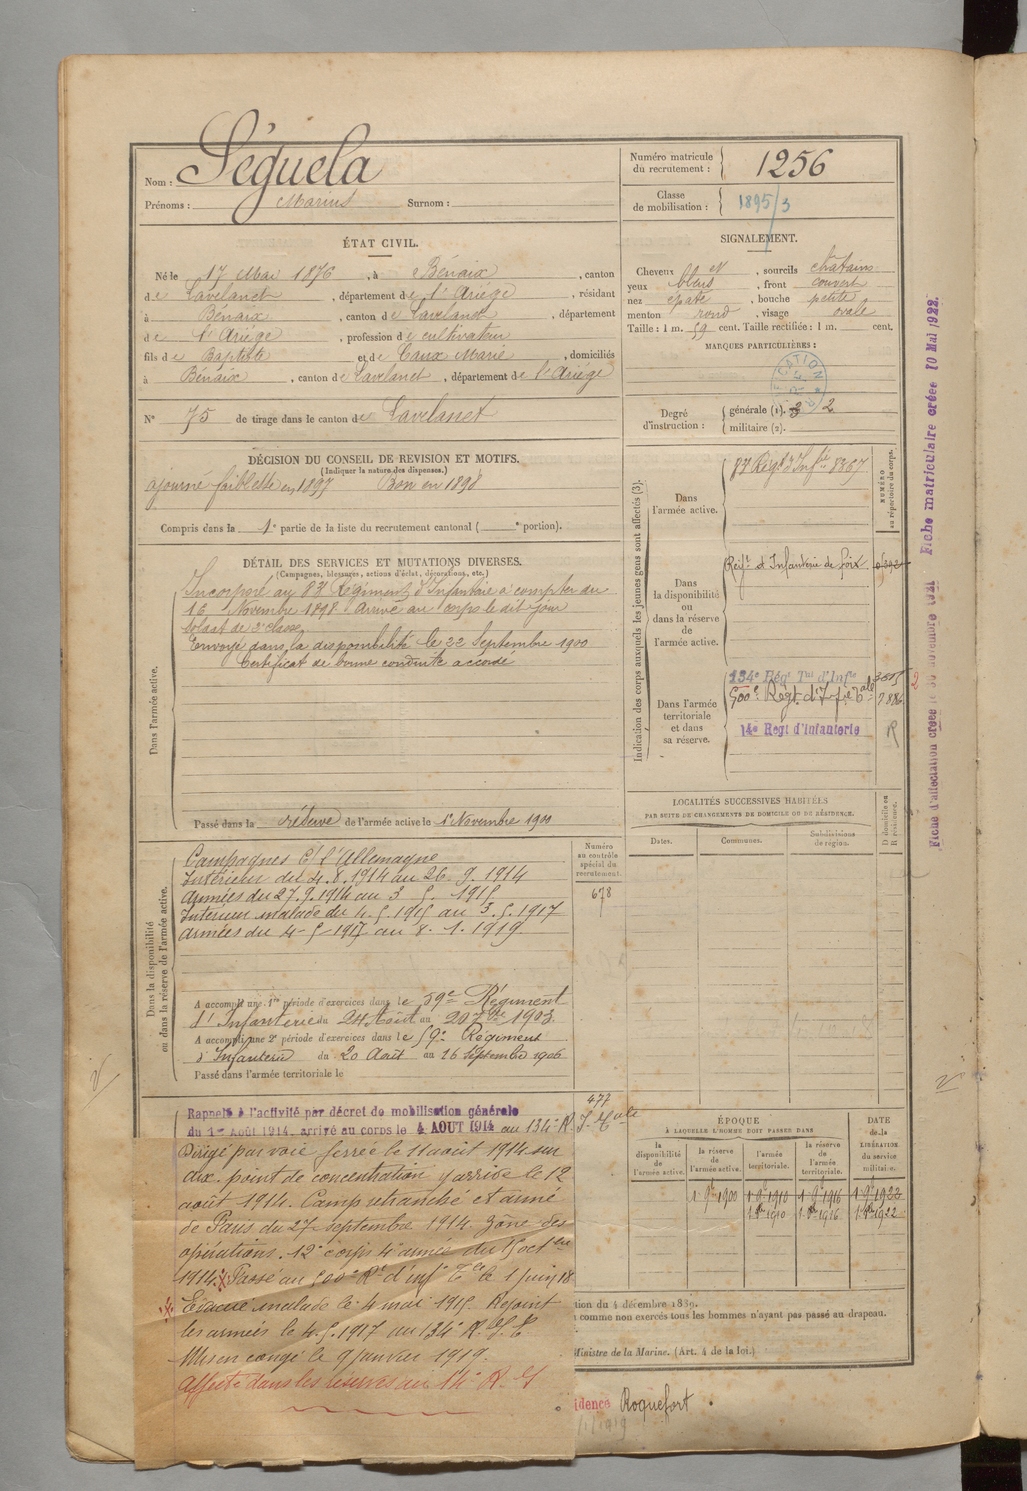 Nom : Séguela
Prénoms : Marius Surnom :
Numéro matricule du recrutement : 1256
Classe de mobilisation : 1895/3
ÉTAT CIVIL.
Né le 17 Mai 1876, à Bénaix, canton
de Lavelanet, département de l'Ariège, résidant
à Bénaix, canton de Lavelanet, département
de l'Ariège, profession de cultivateur
fils de Baptiste et de Caux Marie, domiciliés
à Bénaix, canton de Lavelanet, département de l'Ariège
N° 75 de tirage dans le canton de Lavelanet
SIGNALEMENT.
Cheveux et, sourcils châtains
yeux bleus, front couvert
nez épaté, bouche petite
menton rond, visage ovale
Taille : 1 m. 59 cent. Taille rectifiée : 1 m. cent.
MARQUES PARTICULIÈRES :
Degré d'instruction : générale (1). 3 2
militaire (2).
DÉCISION DU CONSEIL DE REVISION ET MOTIFS.
(Indiquer la nature des dispenses.)
ajourné faiblesse en 1897 Bon en 1898
Compris dans la 1e partie de la liste du recrutement cantonal ( e portion).
DÉTAIL DES SERVICES ET MUTATIONS DIVERSES.
(Campagnes, blessures, actions d'éclat, décorations, etc.)
Dans l'armée active.
Incorporé au 83e Régiment d'Infanterie à compter du
16 Novembre 1898 Arrivé au corps le dit jour
soldat de 2e classe
Envoyé dans la disponibilité le 22 Septembre 1900
Certificat de bonne conduite accordé
Passé dans la réserve de l'armée active le 1er Novembre 1900
Indication des corps auxquels les jeunes gens sont affectés (3).
NUMÉRO au répertoire du corps.
Dans l'armée active.
83e Régt d'Infrie 8367
Dans la disponibilité ou dans la réserve de l'armée active.
Régt d'Infanterie de Foix
Dans l'armée territoriale et dans sa réserve.
134e Rég Tal d'Infie
500e Régt d'Infie Tale
14e Regt d'infanterie R
LOCALITÉS SUCCESSIVES HABITÉES
PAR SUITE DE CHANGEMENTS DE DOMICILE OU DE RÉSIDENCE.
Dates. Communes. Subdivisions de région. D domicile ou R résidence.
Dans la disponibilité ou dans la réserve de l'armée active.
Numéro au contrôle spécial du recrutement.
678
Campagnes C/ l'Allemagne
Intérieur du 4.8.1914 au 26.9.1914
Armées du 27.9.1914 au 3 5. 1915
Intérieur malade du 4.5.1915 au 3.5.1917
Armées du 4-5-1917 au 8.1.1919
A accompli une 1re période d'exercices dans le 59e Régiment
d'Infanterie du 24 Août au 20 7bre 1903
A accompli une 2e période d'exercices dans le 59e Régiment
d'Infanterie du 20 Août au 16 Septembre 1906
Passé dans l'armée territoriale le
477
Rappelé à l'activité par décret de mobilisation générale
du 1er Août 1914, arrivé au corps le 4 AOUT 1914 au 134e R. I. Tale
Dirigé par voie ferrée le 11 août 1914 sur
aix. point de concentration y arrive le 12
août 1914. Camp retranché et armé
de Paris du 27 septembre 1914 Zône des
opérations. 12e corps 4e armée du 15 octbre
1914. Passé au 500e Rt d'inf Tle le 1 juin 18
Evacué malade le 4 mai 1915. Rejoint
les armées le 4.5.1917 au 134e R.I.T
Mis en congé le 9 janvier 1919.
Affecté dans les réserves au 14e R.I
ÉPOQUE
À LAQUELLE L'HOMME DOIT PASSER DANS
la disponibilité de l'armée active. la réserve de l'armée active. l'armée territoriale. la réserve de l'armée territoriale.
DATE de la LIBÉRATION du service militaire.
1 9bre 1900 1 9bre 1910 1 9bre 1916 1 9bre 1922
1 8bre 1910 1 8bre 1916 1 8bre 1922
tion du 4 décembre 1889.
comme non exercés tous les hommes n'ayant pas passé au drapeau.
Ministre de la Marine. (Art. 4 de la loi.)
idence Roquefort
Fiche d'affectation créée le 30 novembre 1921 Fiche matriculaire créée 10 Mai 1922.